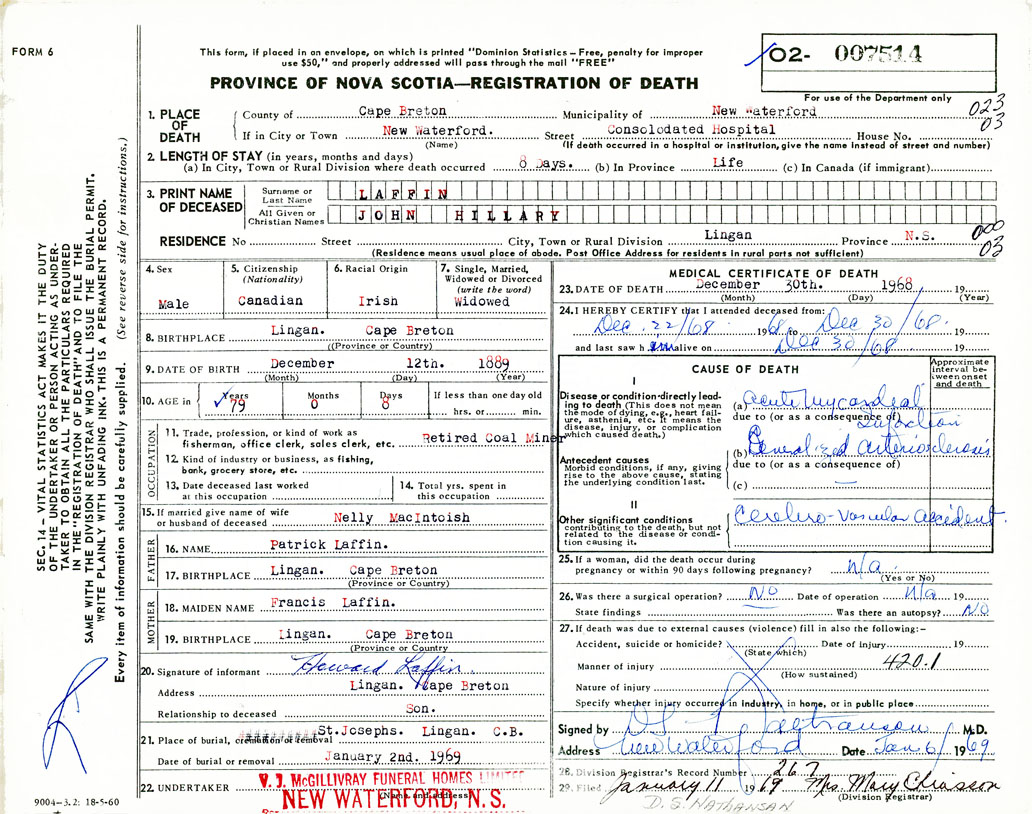 FORM 6
This form, if placed in an envelope, on which is printed "Dominion Statistics – Free, penalty for improper
use $50," and properly addressed will pass through the mail "FREE"
PROVINCE OF NOVA SCOTIA—REGISTRATION OF DEATH
02- 007514
For use of the Department only
023
03
1. PLACE OF DEATH
County of Cape Breton Municipality of New Waterford
If in City or Town New Waterford. Street Consolodated Hospital House No.
(Name) (If death occurred in a hospital or institution, give the name instead of street and number)
2. LENGTH OF STAY (in years, months and days)
(a) In City, Town or Rural Division where death occurred 8 Days. (b) In Province Life (c) In Canada (if immigrant)
3. PRINT NAME OF DECEASED
Surname or Last Name LAFFIN
All Given or Christian Names JOHN HILLARY
RESIDENCE No Street City, Town or Rural Division Lingan Province N.S.
000
03
(Residence means usual place of abode. Post Office Address for residents in rural parts not sufficient)
4. Sex
Male
5. Citizenship
(Nationality)
Canadian
6. Racial Origin
Irish
7. Single, Married,
Widowed or Divorced
(write the word)
Widowed
8. BIRTHPLACE Lingan. Cape Breton
((Province or Country)
9. DATE OF BIRTH December 12th. 1889
(Month) (Day) (Year)
10. AGE in Years 79 Months 0 Days 8 If less than one day old
hrs. or min.
OCCUPATION
11. Trade, profession, or kind of work as
fisherman, office clerk, sales clerk, etc. Retired Coal Miner
12. Kind of industry or business, as fishing,
bank, grocery store, etc.
13. Date deceased last worked
at this occupation
14. Total yrs. spent in
this occupation
15. If married give name of wife
or husband of deceased Nelly MacIntoish
FATHER
16. NAME Patrick Laffin.
17. BIRTHPLACE Lingan. Cape Breton
(Province or Country)
MOTHER
18. MAIDEN NAME Francis Laffin.
19. BIRTHPLACE Lingan. Cape Breton
(Province or Country
20. Signature of informant Howard Laffin
Address Lingan. Cape Breton
Relationship to deceased Son.
21. Place of burial, cremation or removal St.Josephs. Lingan. C.B.
Date of burial or removal January 2nd. 1969
22. UNDERTAKER
V. J. McGILLIVRAY FUNERAL HOMES LIMITED
NEW WATERFORD, N. S.
(Name and address)
MEDICAL CERTIFICATE OF DEATH
23. DATE OF DEATH December 30th. 1968 19
(Month) (Day) (Year)
24. I HEREBY CERTIFY that I attended deceased from:
Dec. 22/68 1968 to Dec 30/68. 19
and last saw him alive on Dec 30/68 19
CAUSE OF DEATH
Approximate
interval be-
tween onset
and death
I
Disease or condition directly lead-
ing to death (This does not mean
the mode of dying, e.g., heart fail-
ure, asthenia, etc. It means the
disease, injury, or complication
which caused death.)
(a) Acute Myocardeal
due to (or as a consequence of) Infarction
(b) Generalized arteriosclerosis
Antecedent causes
Morbid conditions, if any, giving
rise to the above cause, stating
the underlying condition last.
due to (or as a consequence of)
(c) —
II
Other significant conditions
contributing to the death, but not
related to the disease or condi-
tion causing it.
Cerebro-vascular accident.
25. If a woman, did the death occur during
pregnancy or within 90 days following pregnancy? n/a
(Yes or No)
26. Was there a surgical operation? NO Date of operation n/a 19
State findings Was there an autopsy? NO
27. If death was due to external causes (violence) fill in also the following:–
Accident, suicide or homicide? Date of injury 19
(State which)
Manner of injury 420.1
(How sustained)
Nature of injury
Specify whether injury occurred in industry, in home, or in public place
Signed by M.D.
Address New Waterford Date Jan 6/ 1969
28. Division Registrar's Record Number 267
29. Filed January 11 1969 Mrs. Mary Chiasson
(Division Registrar)
D. S. NATHANSAN
SEC. 14 – VITAL STATISTICS ACT MAKES IT THE DUTY
OF THE UNDERTAKER OR PERSON ACTING AS UNDER-
TAKER TO OBTAIN ALL THE PARTICULARS REQUIRED
IN THE "REGISTRATION OF DEATH" AND TO FILE THE
SAME WITH THE DIVISION REGISTRAR WHO SHALL ISSUE THE BURIAL PERMIT.
WRITE PLAINLY WITH UNFADING INK. THIS IS A PERMANENT RECORD.
Every item of information should be carefully supplied. (See reverse side for instructions.)
9004–3.2: 18-5-60